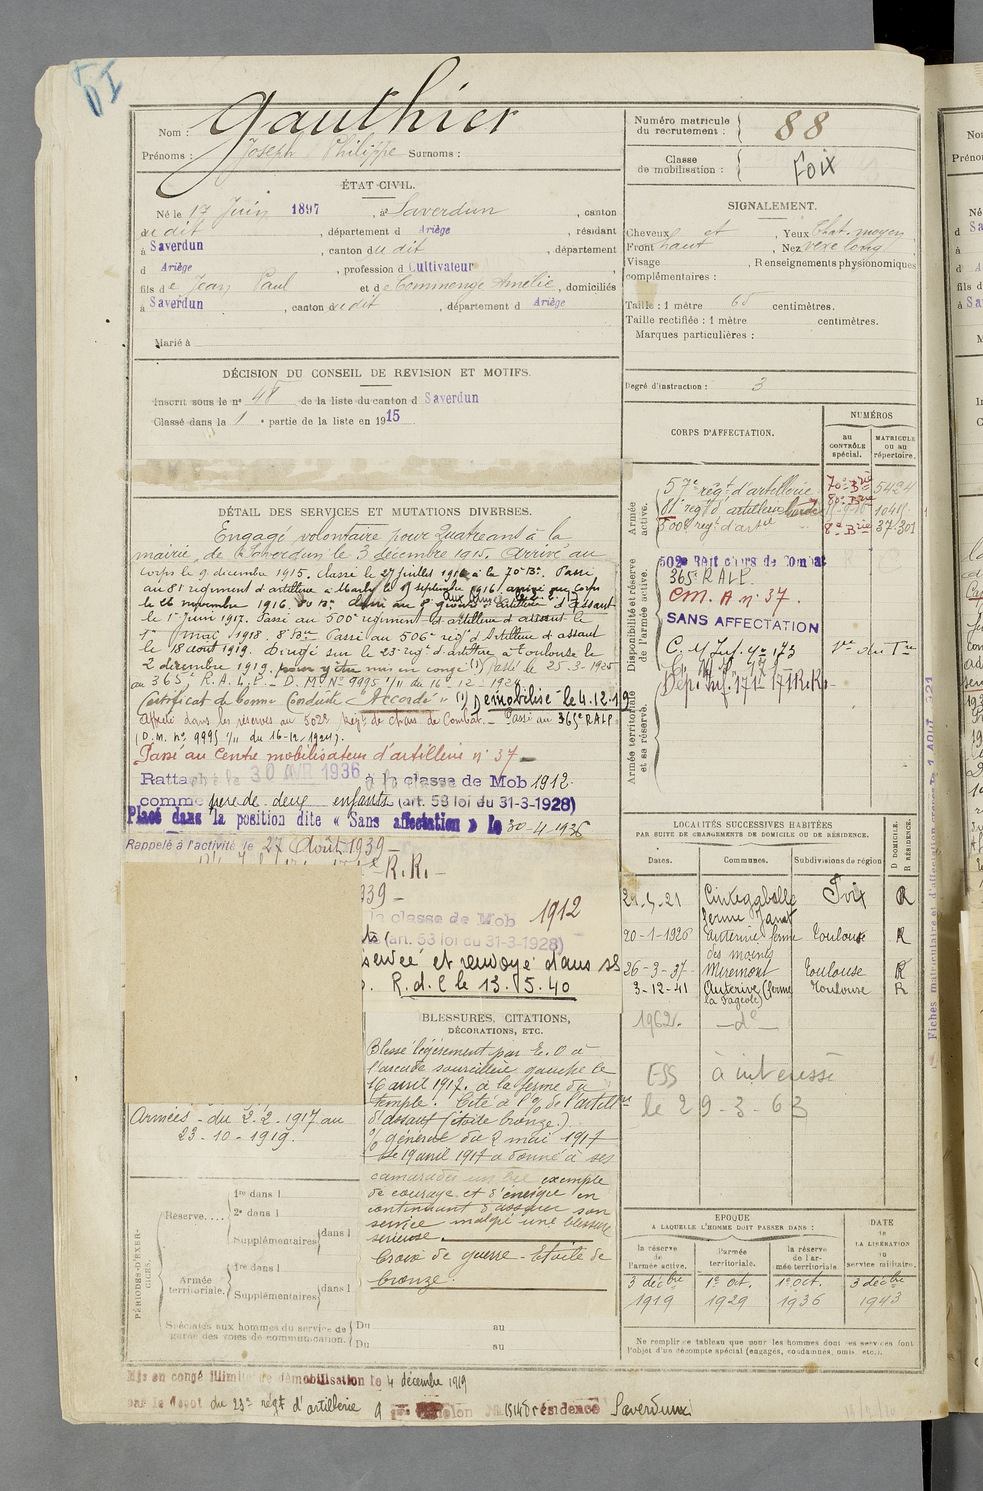 Nom : Gauthier
Prénoms : Joseph Philippe Surnoms :
Numéro matricule du recrutement : 88
Classe de mobilisation : Foix
ÉTAT CIVIL.
Né le 17 Juin 1897, à Saverdun, canton
du dit, département d Ariège, résidant
à Saverdun, canton du dit, département
d Ariège, profession d Cultivateur
fils de Jean Paul et de Commenge Amélie, domiciliés
à Saverdun, canton du dit, département d Ariège
Marié à
SIGNALEMENT.
Cheveux et, Yeux Chat. moyen
Front haut, Nez vexe long
Visage, Renseignements physionomiques
complémentaires :
Taille : 1 mètre 65 centimètres.
Taille rectifiée : 1 mètre centimètres.
Marques particulières :
Degré d'instruction : 3
DÉCISION DU CONSEIL DE REVISION ET MOTIFS.
Inscrit sous le n° 48 de la liste du canton d Saverdun
Classé dans la 1e partie de la liste en 1915
CORPS D'AFFECTATION.
NUMÉROS
au CONTRÔLE spécial.
MATRICULE OU AU répertoire.
Armée active.
57e régt d'artillerie 70e Brie 5424
81e régt d'artillerie lourde 80e Brie
500e regt d'artie 8e Brie 37301
Disponibilité et réserve de l'armée active.
502e Régt chars de Combat
365e R.A.L.P.
C.M.A n° 37.
SANS AFFECTATION
Armée territoriale et sa réserve.
Dép. Inf. 171 - 171 R.R.
DÉTAIL DES SERVICES ET MUTATIONS DIVERSES.
Engagé volontaire pour Quatre ans à la
mairie de Saverdun le 3 décembre 1915. Arrivé au
corps le 9 décembre 1915. Classé le 27 juillet 1916 à la 70e Bie. Passé
au 81e régiment d'artillerie à Marly le 9 septembre 1916 arrivé au corps
le 26 novembre 1916. 80e Bie Passé au 8e groupe d'artillerie d'assaut
le 1er Juin 1917. Passé au 500e régiment d'artillerie d'assaut le
1er mai 1918. 8e Bie Passé au 506e régt d'Artillerie d'assaut
le 18 aout 1919. Dirigé sur le 23e régt d'artie à Toulouse le
2 décembre 1919 pour y être mis en congé (1) Passé le 25-3-1925
au 365e R.A.L.P. - D.M. N° 9995 1/11 du 16-12-1924
Certificat de bonne Conduite "Accordé" (1) Démobilisé le 4.12.19
Affecté dans les réserves au 502e Régt de chars de Combat. - Passé au 365e RALP
(D.M. n° 9995 1/11 du 16-12-1924).
Passé au Centre mobilisateur d'artillerie n° 37
Rattaché le 30 AVR 1936 à la classe de Mob 1912
comme père de deux enfants (art. 58 loi du 31-3-1928)
Placé dans la position dite « Sans affectation » le 30-4-1936
Rappelé à l'activité le 27 Août 1939 -
R.R. -
939 -
la classe de Mob 1912
(art. 53 loi du 31-3-1928)
et renvoyé dans ses
R.d.C le 13.5.40
LOCALITÉS SUCCESSIVES HABITÉES
PAR SUITE DE CHANGEMENTS DE DOMICILE OU DE RÉSIDENCE.
D DOMICILE. R RÉSIDENCE.
Dates. Communes. Subdivisions de région
Cintegabelle Foix R
20-1-1926 Auterive ferme des moines Toulouse R
26-3-37 Miremont Toulouse R
3-12-41 Auterive (ferme la Pageole) Toulouse R
1962. - do -
ESS à intéressé
le 29-3-63
BLESSURES, CITATIONS,
DÉCORATIONS, ETC.
Blessé légèrement par E.O à
l'arcade sourcilière gauche le
16 avril 1917. à la ferme du
temple. Cité à l'o/ de l'artillie
d'assaut (étoile bronze.)
o/ général du 2 mai 1917
Le 19 avril 1917 a donné à ses
camarades un bel exemple
de courage et d'énergie en
continuant d'assurer son
service malgré une blessure
sérieuse.
Croix de guerre - Etoile de
bronze.
Armées - du 2.2.1917 au
23-10-1919.
PÉRIODES D'EXERCICES.
Réserve.... 1re dans l
2e dans l
Supplémentaires dans l
Armée territoriale. 1re dans l
Supplémentaires dans l
Spéciales aux hommes du service de garde des voies de communication. Du au
Du au
EPOQUE
A LAQUELLE L'HOMME DOIT PASSER DANS :
DATE DE LA LIBÉRATION DU service militaire.
la réserve de l'armée active. l'armée territoriale. la réserve de l'armée territoriale.
3 décbre 1919 1er oct. 1929 1er oct. 1936 3 décbre 1943
Ne remplir ce tableau que pour les hommes dont les services font
l'objet d'un décompte spécial (engagés, condamnés, omis, etc.).
Mis en congé illimité de démobilisation le 4 décembre 1919
par le dépot du 23e régt d'artillerie résidence Saverdun
Fiches matriculaire et d'affectation